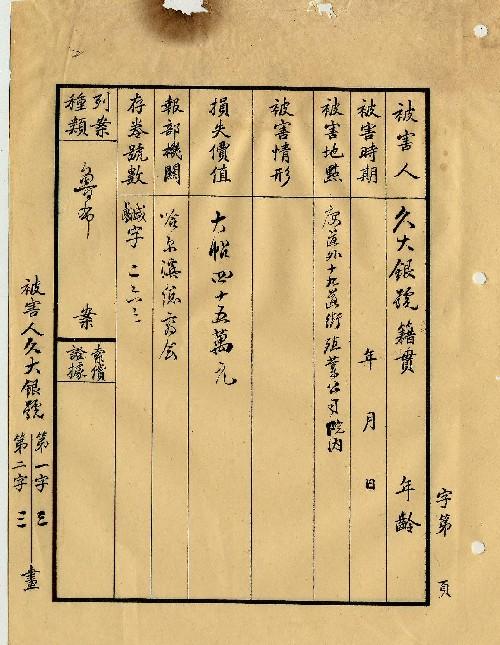 字第 頁
被害人 久大銀號 籍貫 年齡
被害時期 年 月 日
被害地點 外十九道街 業公司院內
被害情形
損失價值 大帖四十五萬元
報部機關 哈尔濱總商会
存券號數 鹹字二六三
列案種類 魯布 案
索償證據
被害人久大銀號 第一字 三 第二字 三 畫